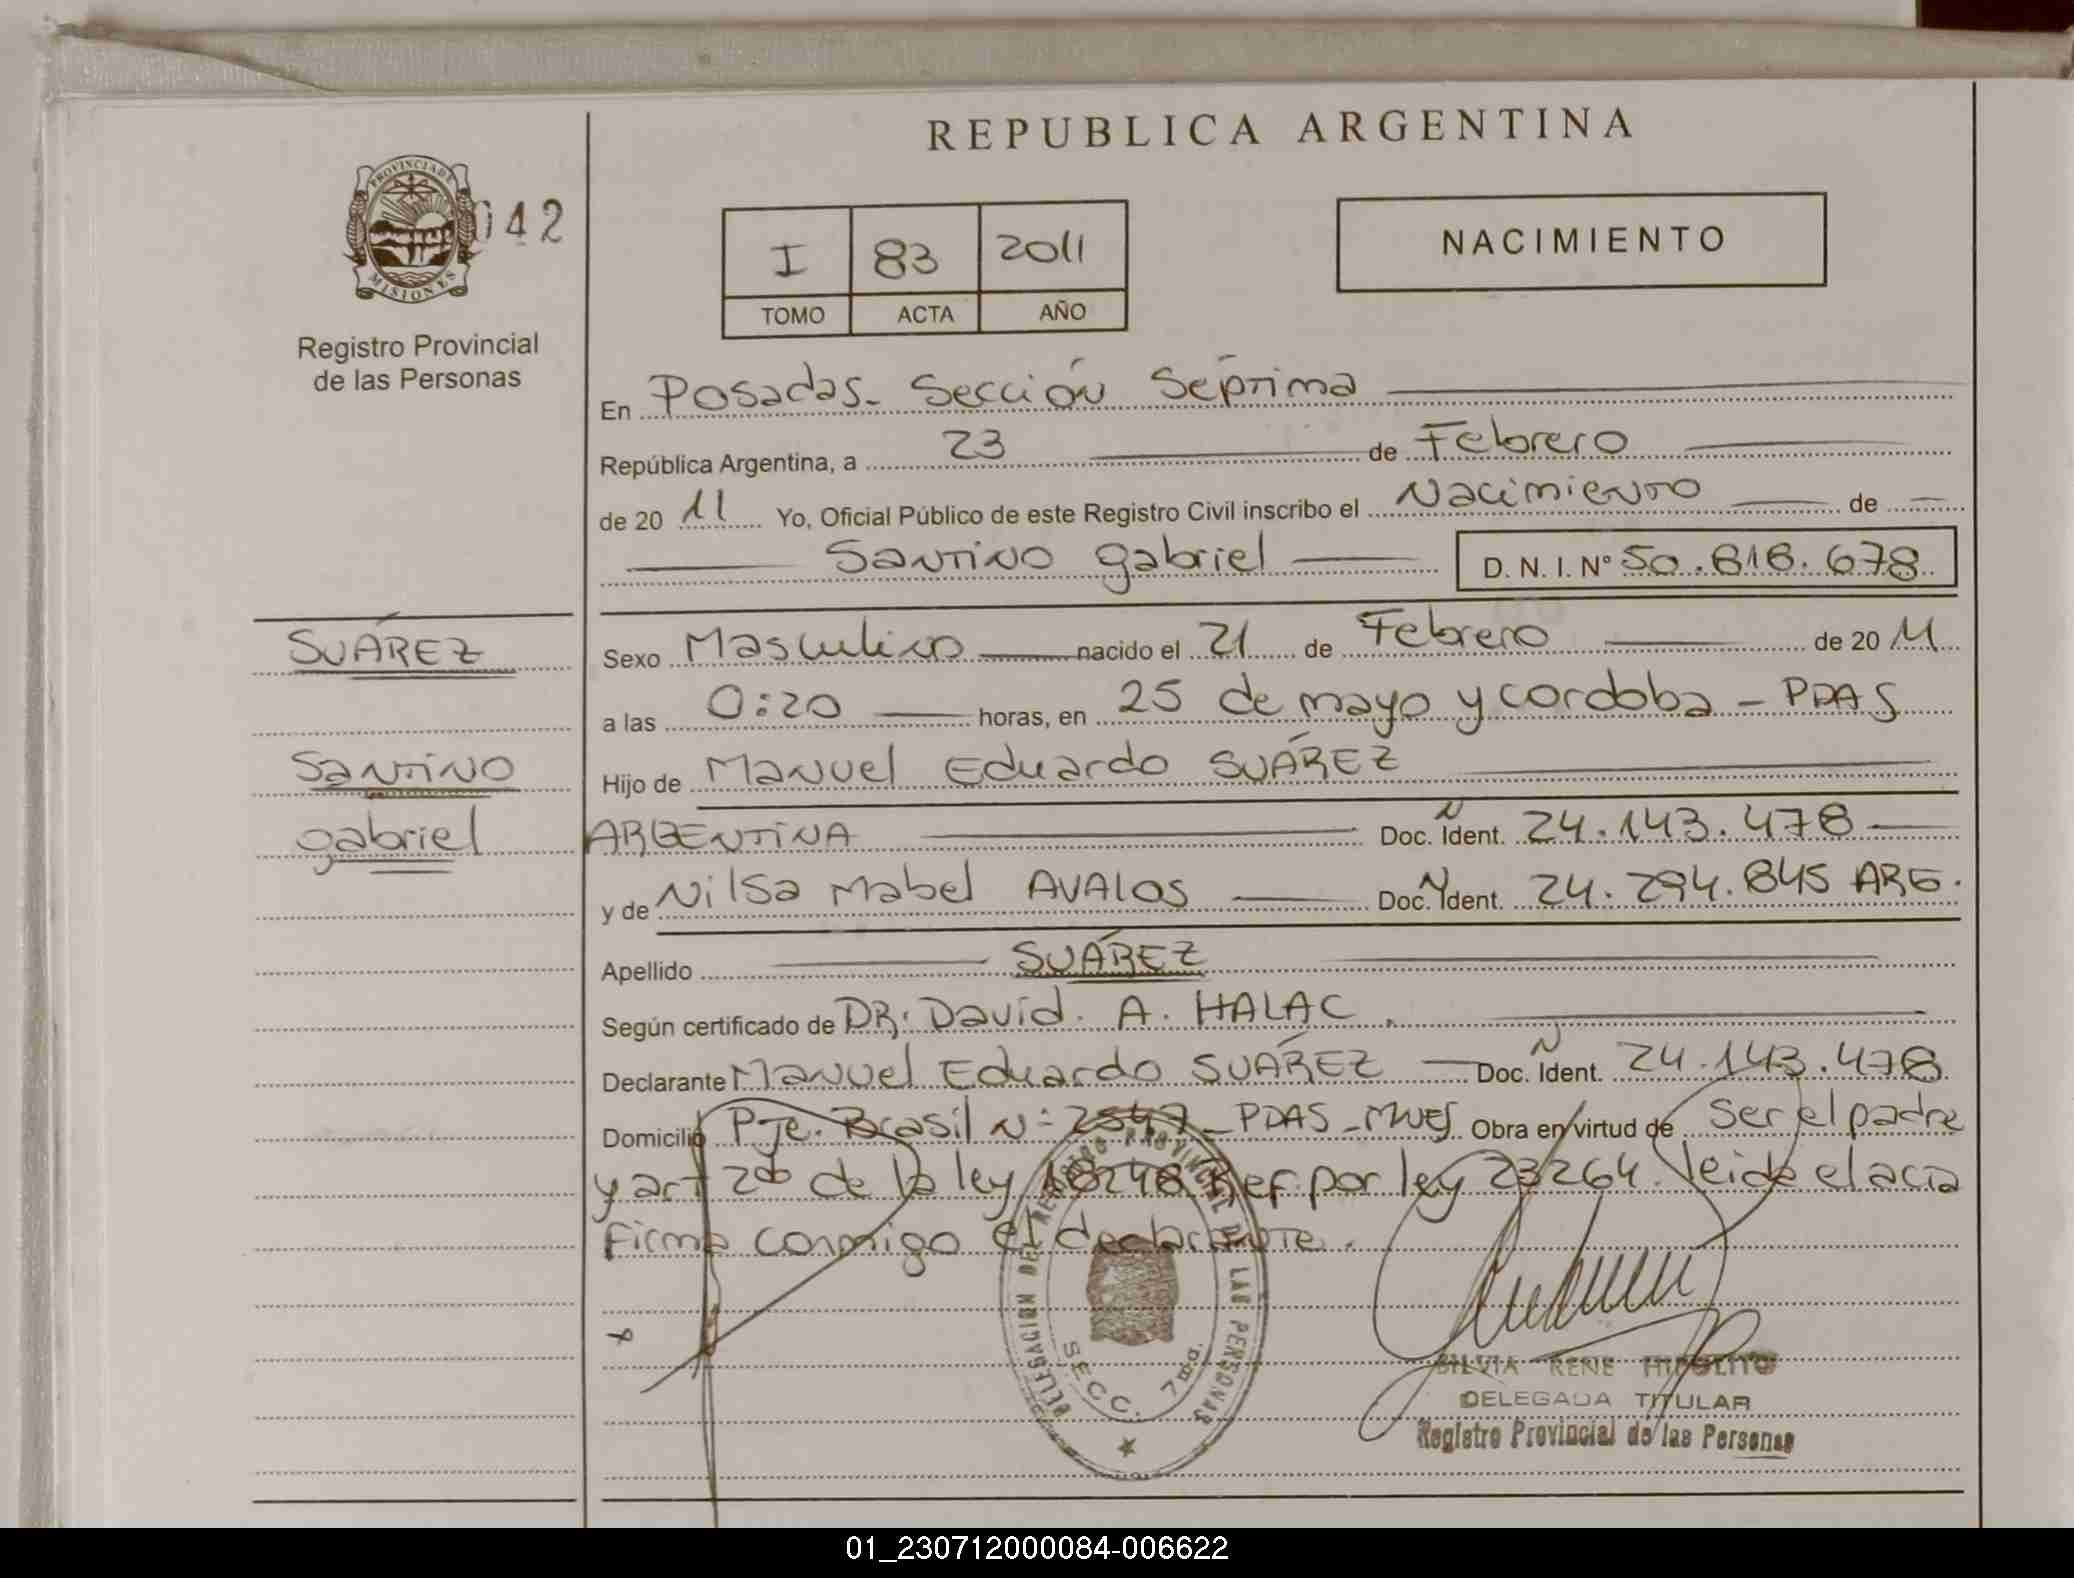 REPUBLICA ARGENTINA
PROVINCIA DE MISIONES
042
Registro Provincial
de las Personas
I 83 2011
TOMO ACTA AÑO
NACIMIENTO
En Posadas - Sección Séptima
República Argentina, a 23 de Febrero
de 20 11 Yo, Oficial Público de este Registro Civil inscribo el Nacimiento de
Santino gabriel D. N. I. Nº 50.818.678
SUÁREZ
Santino
gabriel
Sexo Masculino nacido el 21 de Febrero de 20 11
a las 0:20 horas, en 25 de mayo y cordoba - PDAS
Hijo de Manuel Eduardo SUÁREZ
ARGENTINA Doc. Ident. N 24.143.478
y de Nilsa Mabel AVALOS Doc. Ident. N 24.294.845 ARG.
Apellido SUÁREZ
Según certificado de DR. David. A. HALAC.
Declarante Manuel Eduardo SUÁREZ Doc. Ident. N 24.143.478
Domicilio Pje. Brasil N: 2547 - PDAS - Mnes Obra en virtud de Ser el padre
y art 2do de la ley 18248 Ref. por ley 23264. leida el acta
Firma conmigo el declarante.
DELEGACION DEL REGISTRO PROVINCIAL DE LAS PERSONAS
SECC. 7ma.
SILVIA RENE HIPOLITO
DELEGADA TITULAR
Registro Provincial de las Personas
01_230712000084-006622